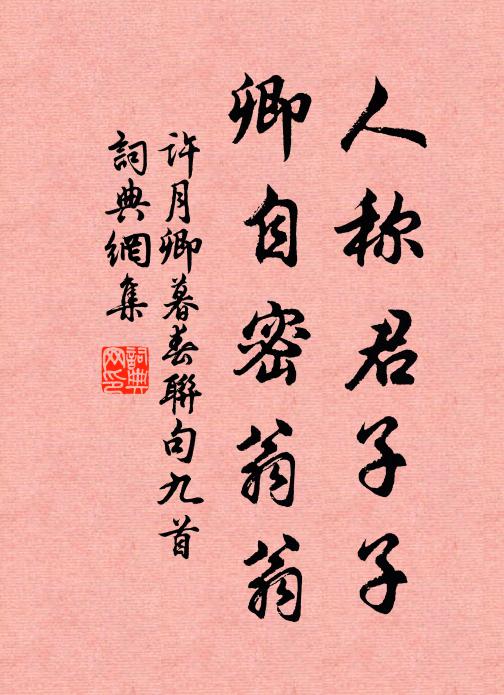 人称君子子
卿自密翁翁
许月卿暮春聯句九首
詞典網集
詞典网印